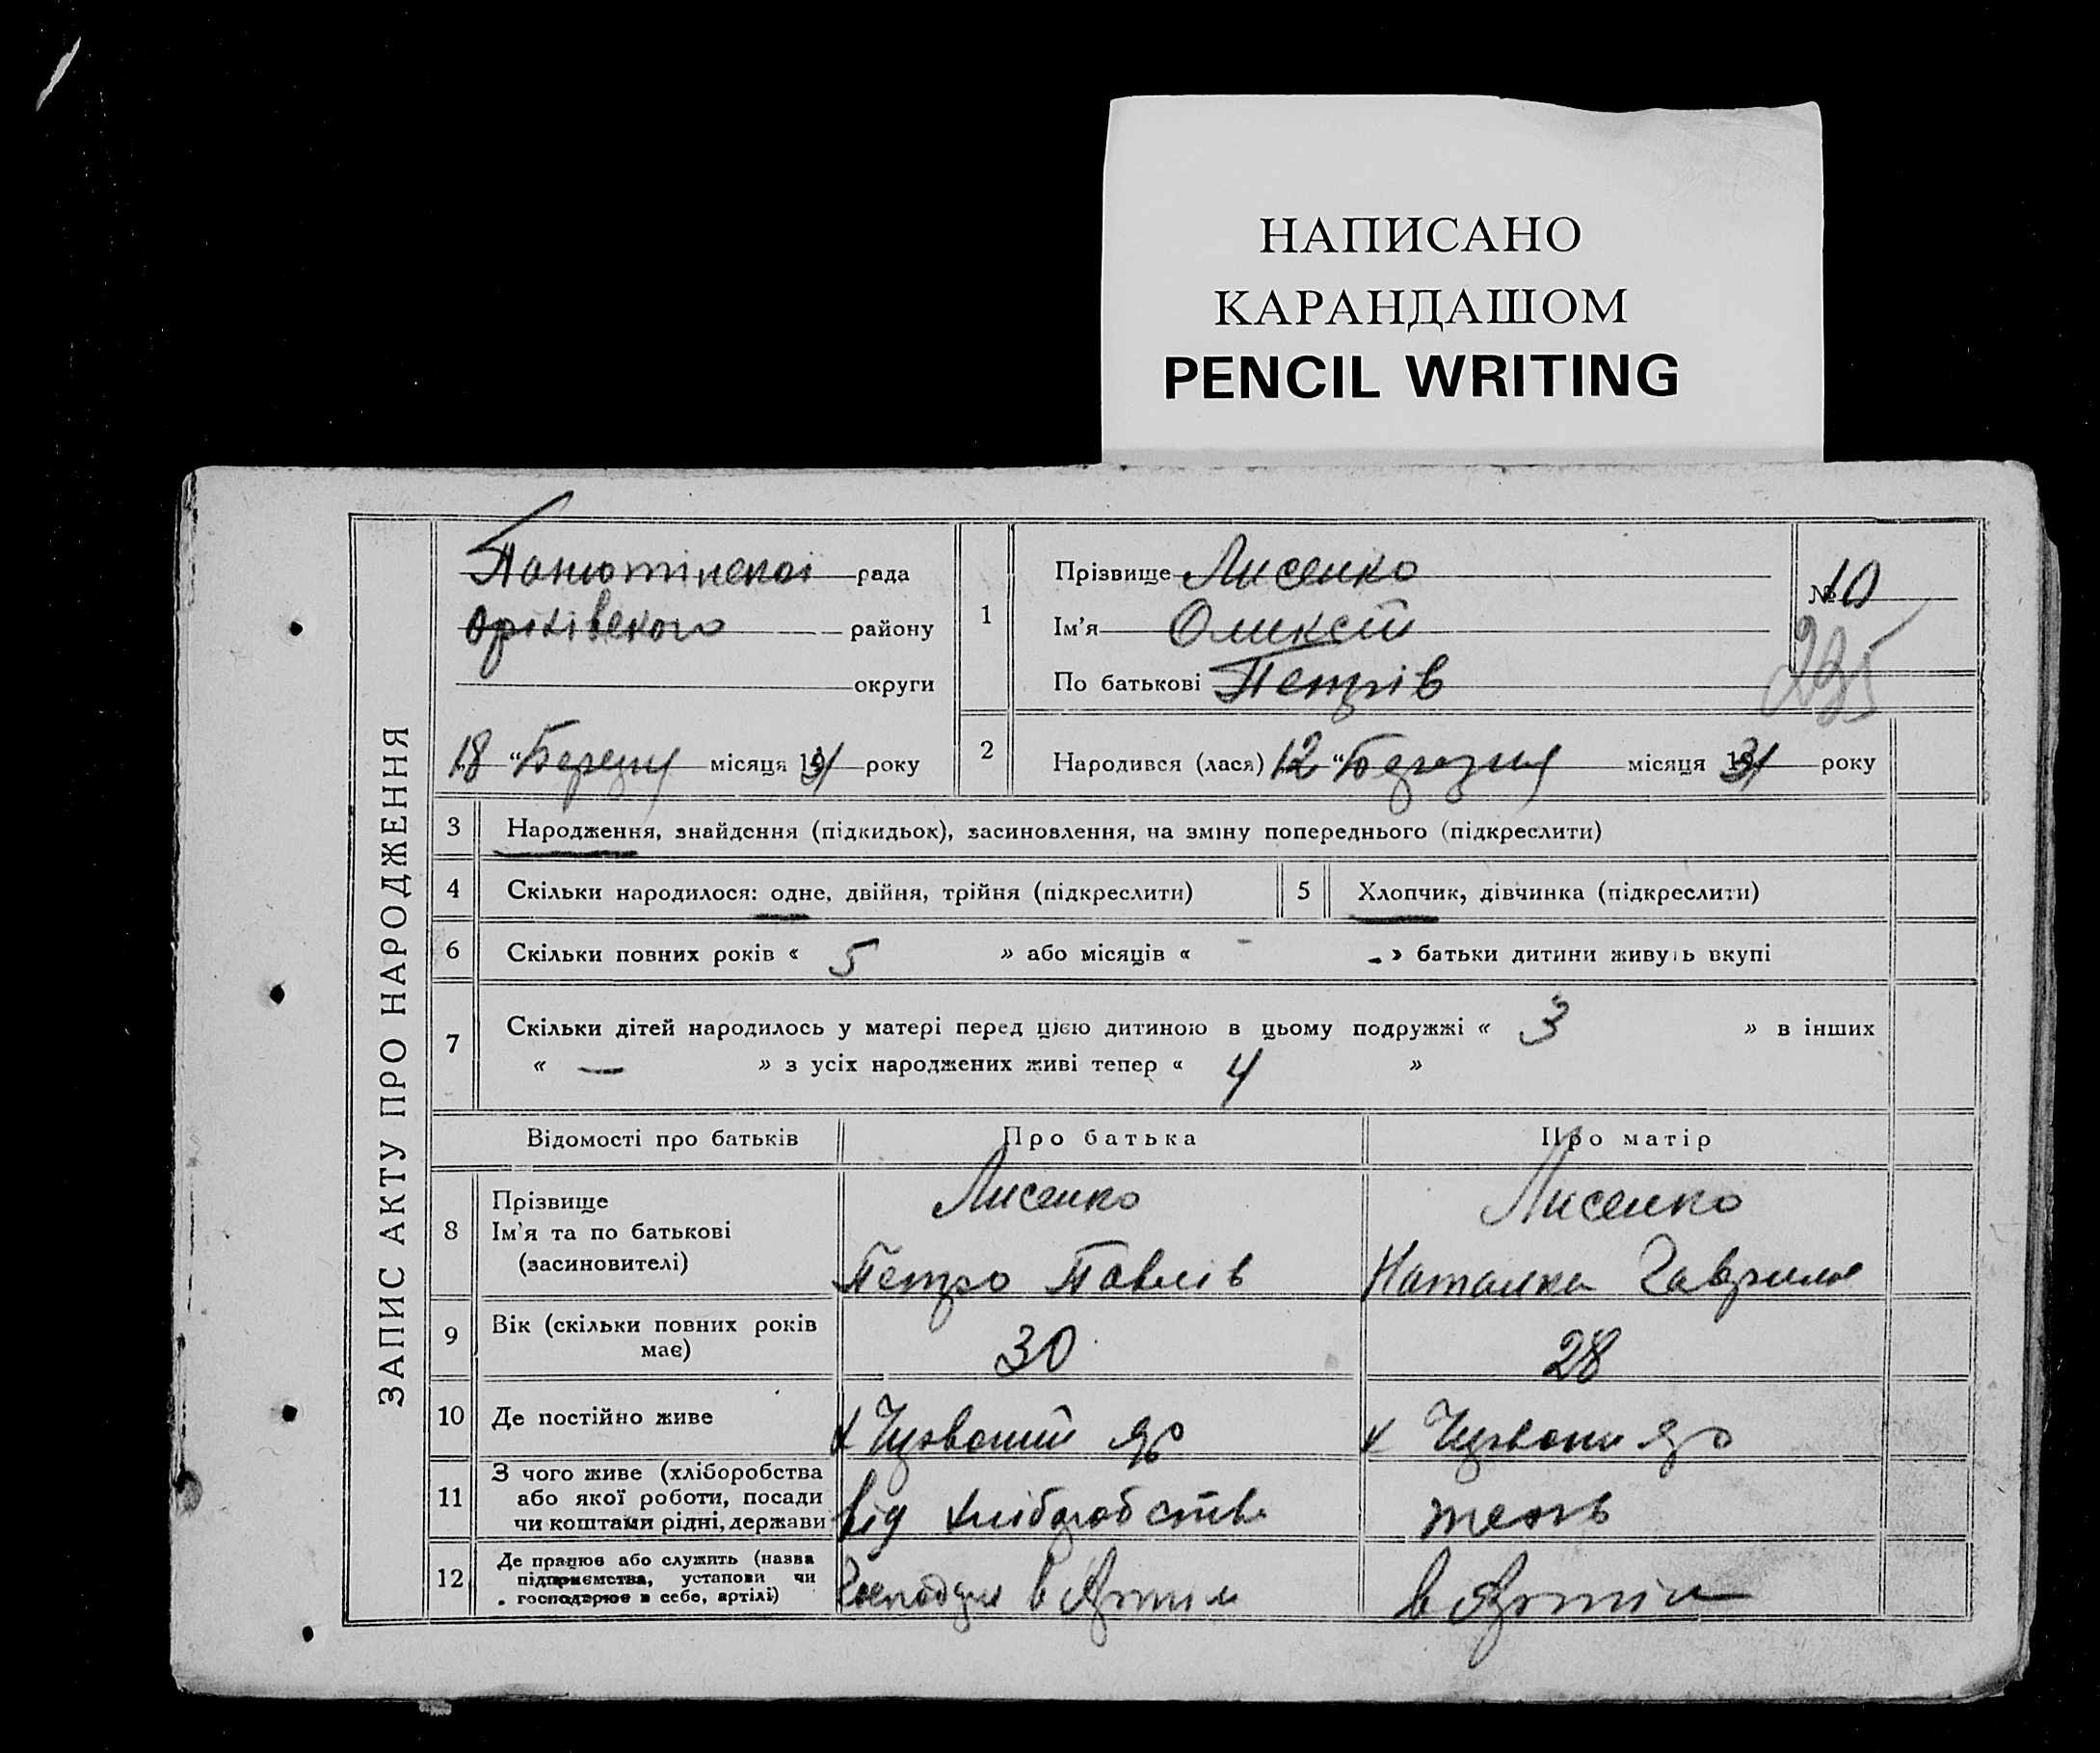 НАПИСАНО
КАРАНДАШОМ
PENCIL WRITING
ЗАПИС АКТУ ПРО НАРОДЖЕННЯ
Панютінської рада
Оріхівського району
округи
18 "Березня місяця 1931 року
1
Прізвище Лисенко
Ім'я Олексій
По батькові Петрів
№ 10
295
2
Народився (лася) 12 "Березня місяця 1931 року
3 Народження, знайдення (підкидьок), засиновлення, на зміну попереднього (підкреслити)
4 Скільки народилося: одне, двійня, трійня (підкреслити)
5 Хлопчик, дівчинка (підкреслити)
6 Скільки повних років « 5 » або місяців « - » батьки дитини живуть вкупі
7 Скільки дітей народилось у матері перед цією дитиною в цьому подружжі « 3 » в інших
« — » з усіх народжених живі тепер « 4 »
Відомості про батьків Про батька Про матір
8 Прізвище
Ім'я та по батькові
(засиновителі)
Лисенко
Петро Павлів
Лисенко
Наталка Гаврилів
9 Вік (скільки повних років
має)
30
28
10 Де постійно живе
х Червоний Яр
х Червони Яр
11 З чого живе (хліборобства
або якої роботи, посади
чи коштами рідні, держави
від хліборобства
теж
12 Де працює або служить (назва
підприємства, установи чи
господарює в себе, артілі)
в Артіли
в Артіли